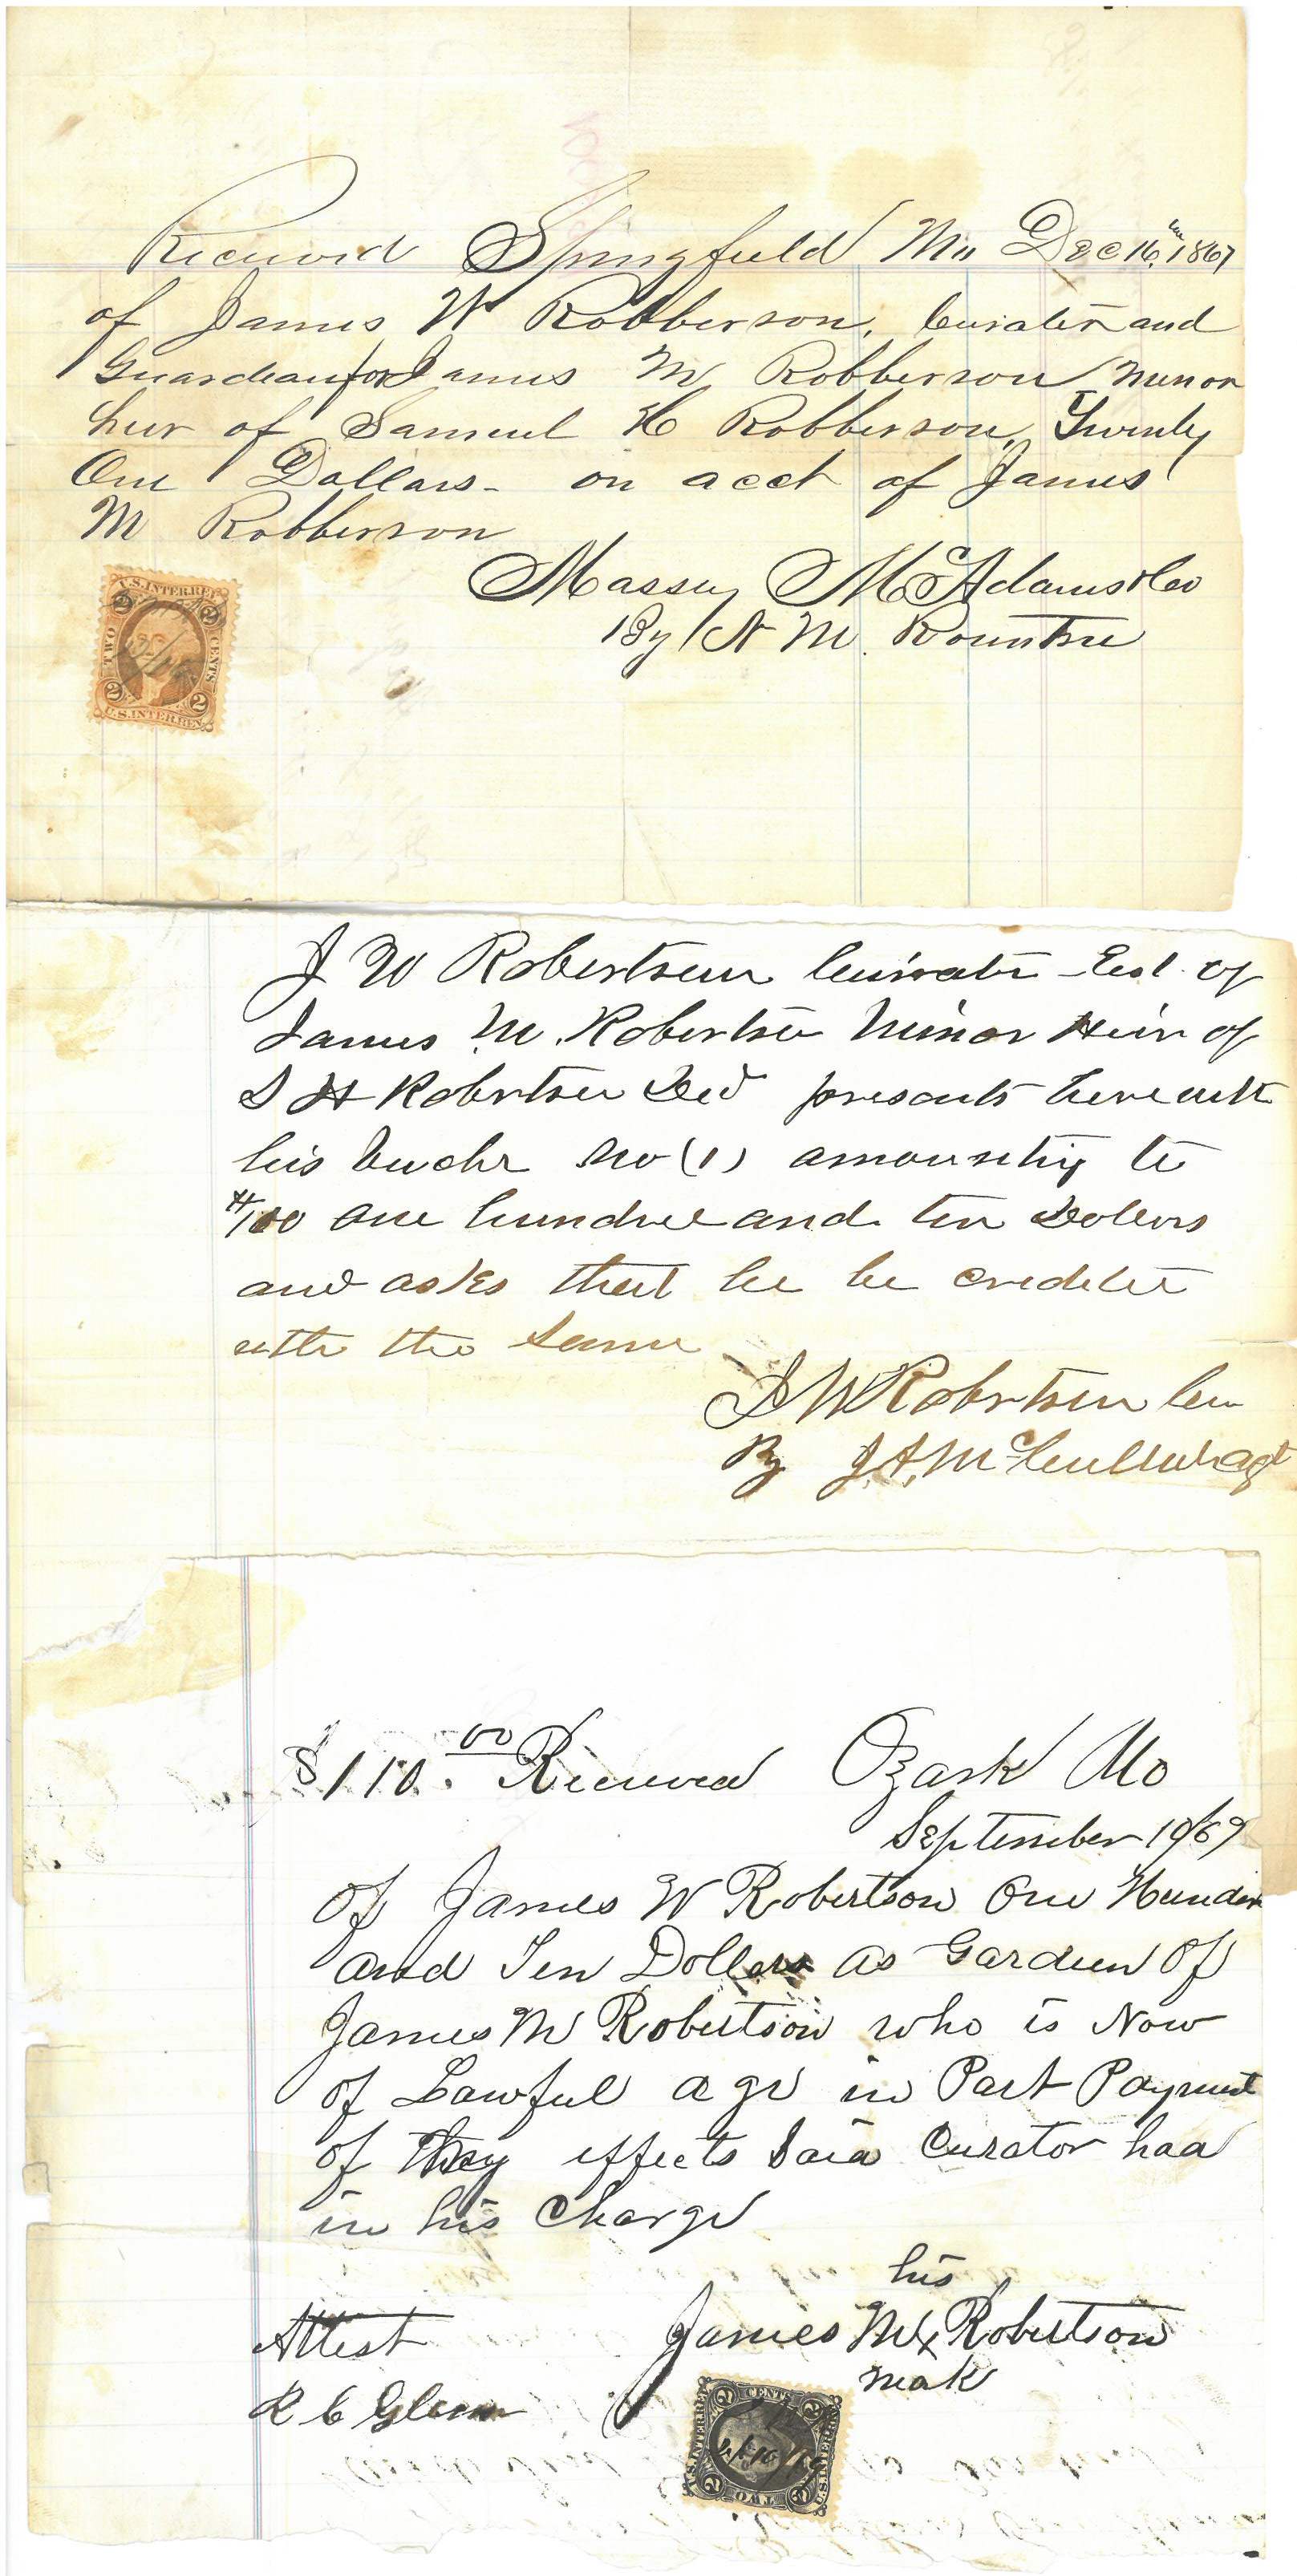 Received Springfield Mo Dec 16th 1867
of James W Robberson, Curator and
Guardian for James M Robberson Minor
heir of Samuel H Robberson, Twenty
One Dollars - on acct of James
M Robberson
Massey McAdams & Co
By N M. Rountree
U.S. INTER. REV.
2 2
TWO CENTS
2 2
U.S. INTER. REV.
J W Robertson Curator Est. of
James M. Robertson Minor Heir of
S H Robertson Decd presents herewith
his vouchr No (1) amounting to
one hundred and ten Dollars
and asks that he be credited
with the same
J W Robertson Cur
By J. A. McCullah agt
$110.00 Received Ozark Mo
September 10/69
of James W Robertson One Hundred
and Ten Dollars as Gardien of
James M Robertson who is Now
of Lawful age in Part Payment
of effects Said Curator had
in his Charge
his
James M x Robertson
mak
Attest
R C Glenn
2 CENTS 2
U.S. INTER. REV.
U.S. INTER. REV.
Sept 10/69
2 TWO 2